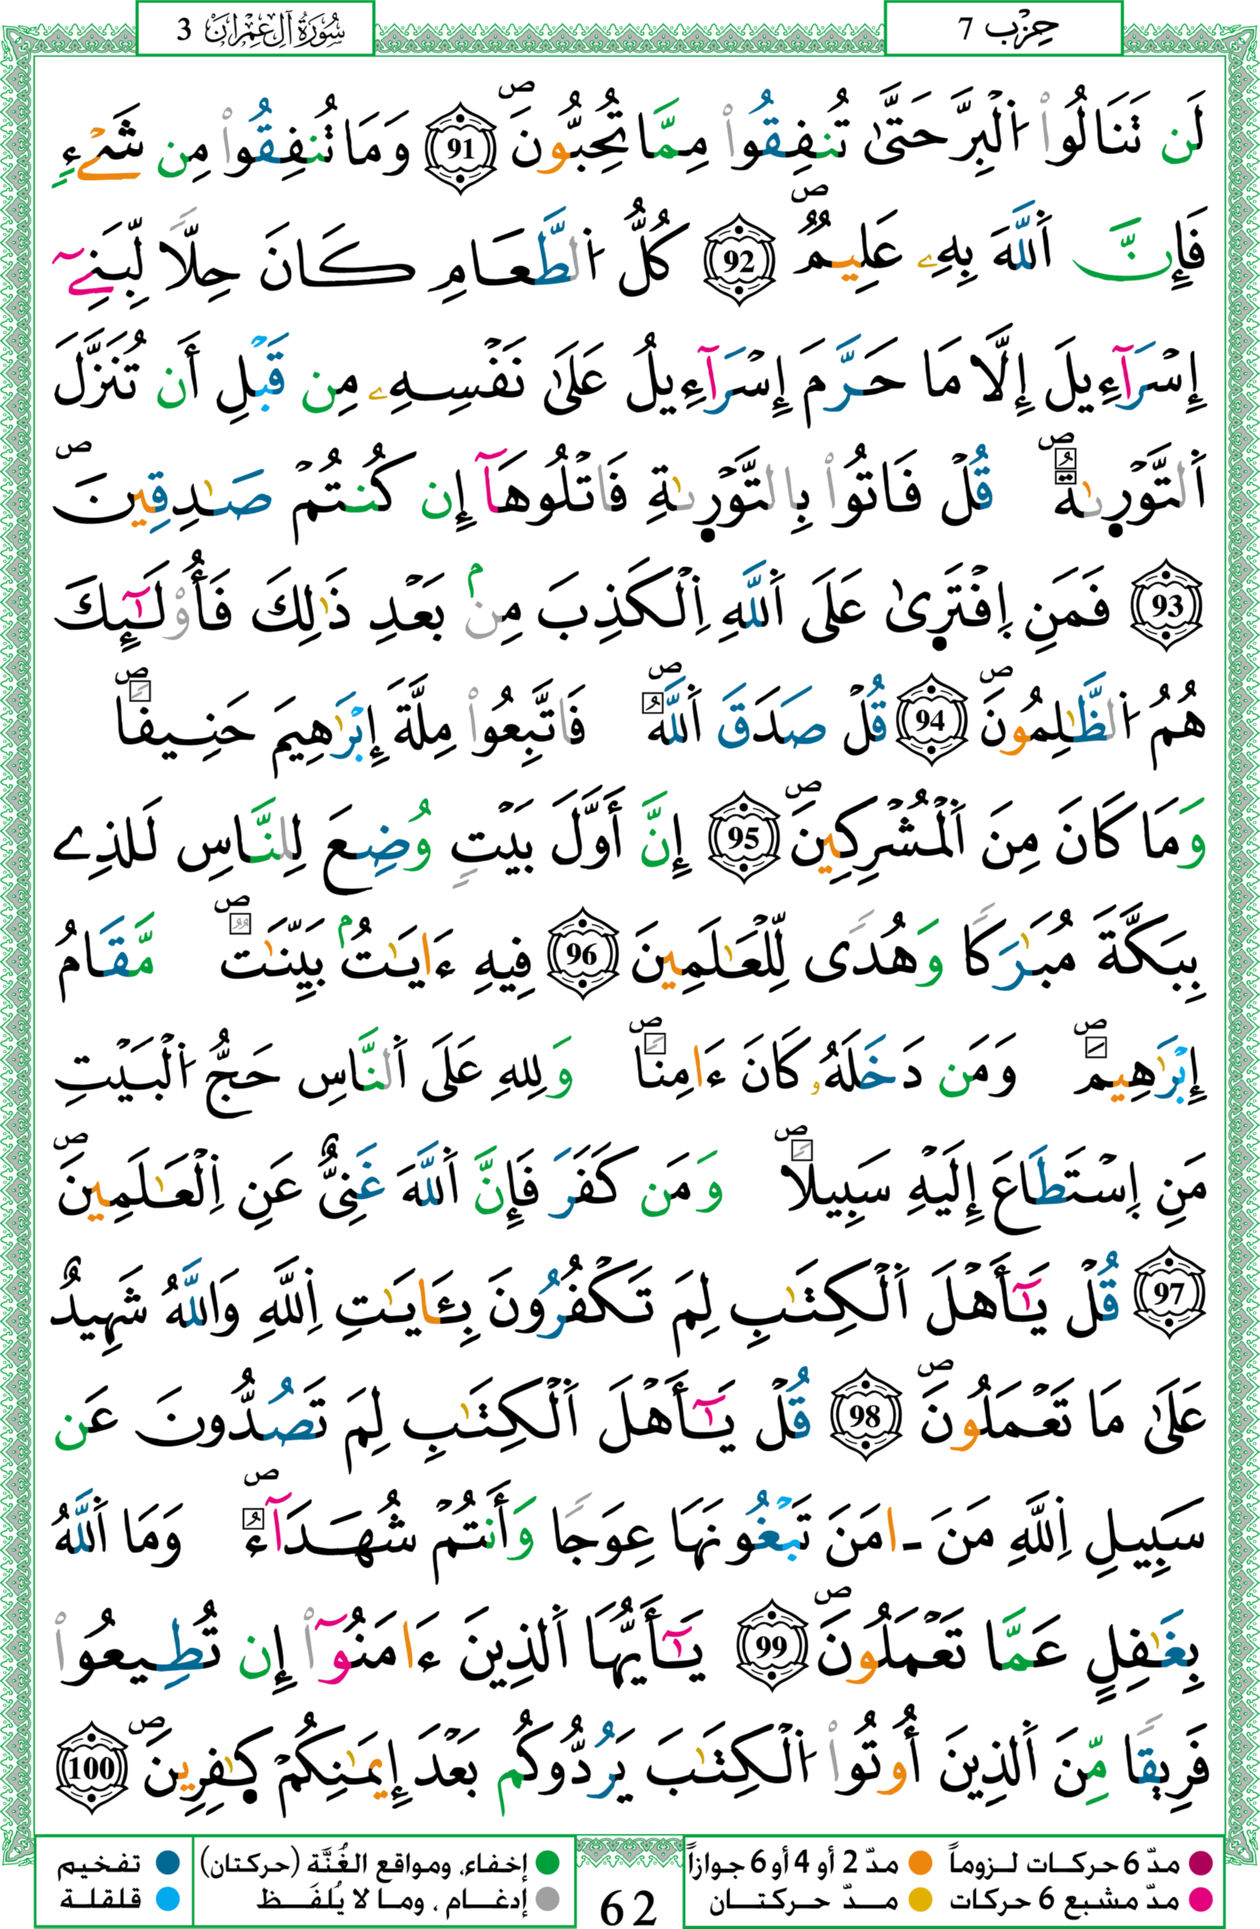 سُورَةُ آلِ عِمْرَان 3
حِزْب 7
لَن تَنَالُواْ اُ۬لْبِرَّ حَتَّىٰ تُنفِقُواْ مِمَّا تُحِبُّونَۖ 91 وَمَا تُنفِقُواْ مِن شَےْءٖ
فَإِنَّ اَ۬للَّهَ بِهِۦ عَلِيمٞۖ 92 كُلُّ اُ۬لطَّعَامِ كَانَ حِلّاٗ لِّبَنِےٓ
إِسْرَآءِيلَ إِلَّا مَا حَرَّمَ إِسْرَآءِيلُ عَلَىٰ نَفْسِهِۦ مِن قَبْلِ أَن تُنَزَّلَ
اَ۬لتَّوْر۪ىٰةُۖ قُلْ فَاتُواْ بِالتَّوْر۪ىٰةِ فَاتْلُوهَآ إِن كُنتُمْ صَٰدِقِينَۖ
93 فَمَنِ اِ۪فْتَر۪ىٰ عَلَى اَ۬للَّهِ اِ۬لْكَذِبَ مِنۢ بَعْدِ ذَٰلِكَ فَأُوْلَٰٓئِكَ
هُمُ اُ۬لظَّٰلِمُونَۖ 94 قُلْ صَدَقَ اَ۬للَّهُۖ فَاتَّبِعُواْ مِلَّةَ إِبْرَٰهِيمَ حَنِيفاٗۖ
وَمَا كَانَ مِنَ اَ۬لْمُشْرِكِينَۖ 95 إِنَّ أَوَّلَ بَيْتٖ وُضِعَ لِلنَّاسِ لَلذِے
بِبَكَّةَ مُبَٰرَكاٗ وَهُدىٗ لِّلْعَٰلَمِينَ 96 فِيهِ ءَايَٰتُۢ بَيِّنَٰتٞۖ مَّقَامُ
إِبْرَٰهِيمَۖ وَمَن دَخَلَهُۥ كَانَ ءَامِناٗۖ وَلِلهِ عَلَى اَ۬لنَّاسِ حَجُّ اُ۬لْبَيْتِ
مَنِ اِ۪سْتَطَاعَ إِلَيْهِ سَبِيلاٗۖ وَمَن كَفَرَ فَإِنَّ اَ۬للَّهَ غَنِيٌّ عَنِ اِ۬لْعَٰلَمِينَۖ
97 قُلْ يَٰٓأَهْلَ اَ۬لْكِتَٰبِ لِمَ تَكْفُرُونَ بِـَٔايَٰتِ اِ۬للَّهِ وَاللَّهُ شَهِيدٌ
عَلَىٰ مَا تَعْمَلُونَۖ 98 قُلْ يَٰٓأَهْلَ اَ۬لْكِتَٰبِ لِمَ تَصُدُّونَ عَن
سَبِيلِ اِ۬للَّهِ مَنَ ـ۬امَنَ تَبْغُونَهَا عِوَجاٗ وَأَنتُمْ شُهَدَآءُۖ وَمَا اَ۬للَّهُ
بِغَٰفِلٍ عَمَّا تَعْمَلُونَۖ 99 يَٰٓأَيُّهَا اَ۬لذِينَ ءَامَنُوٓاْ إِن تُطِيعُواْ
فَرِيقاٗ مِّنَ اَ۬لذِينَ أُوتُواْ اُ۬لْكِتَٰبَ يَرُدُّوكُم بَعْدَ إِيمَٰنِكُمْ كٰ۪فِرِينَۖ 100
مدّ 6 حركات لـزوماً مدّ 2 أو 4 أو 6 جوازاً إخفاء، ومواقع الغُنَّة (حركتان) تفخيم
مدّ مشبع 6 حركات مـدّ حركتــان إدغـام ، ومـا لا يُلفَـظ قلقلة
62